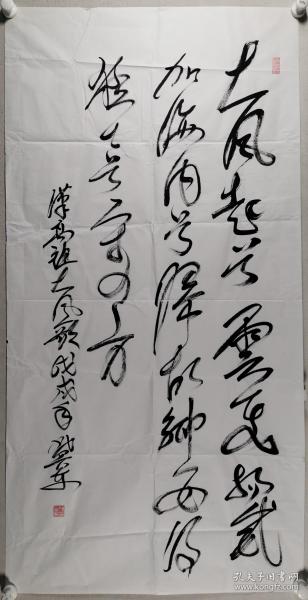 大风起兮云飞扬威
加海内兮归故乡安得
猛士兮守四方
汉高祖大风歌戊戌年
孔夫子旧书网